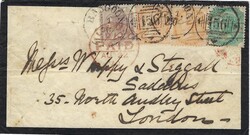 Messrs Whippy & Steggall
Saddlers
35 North Audley Street
London